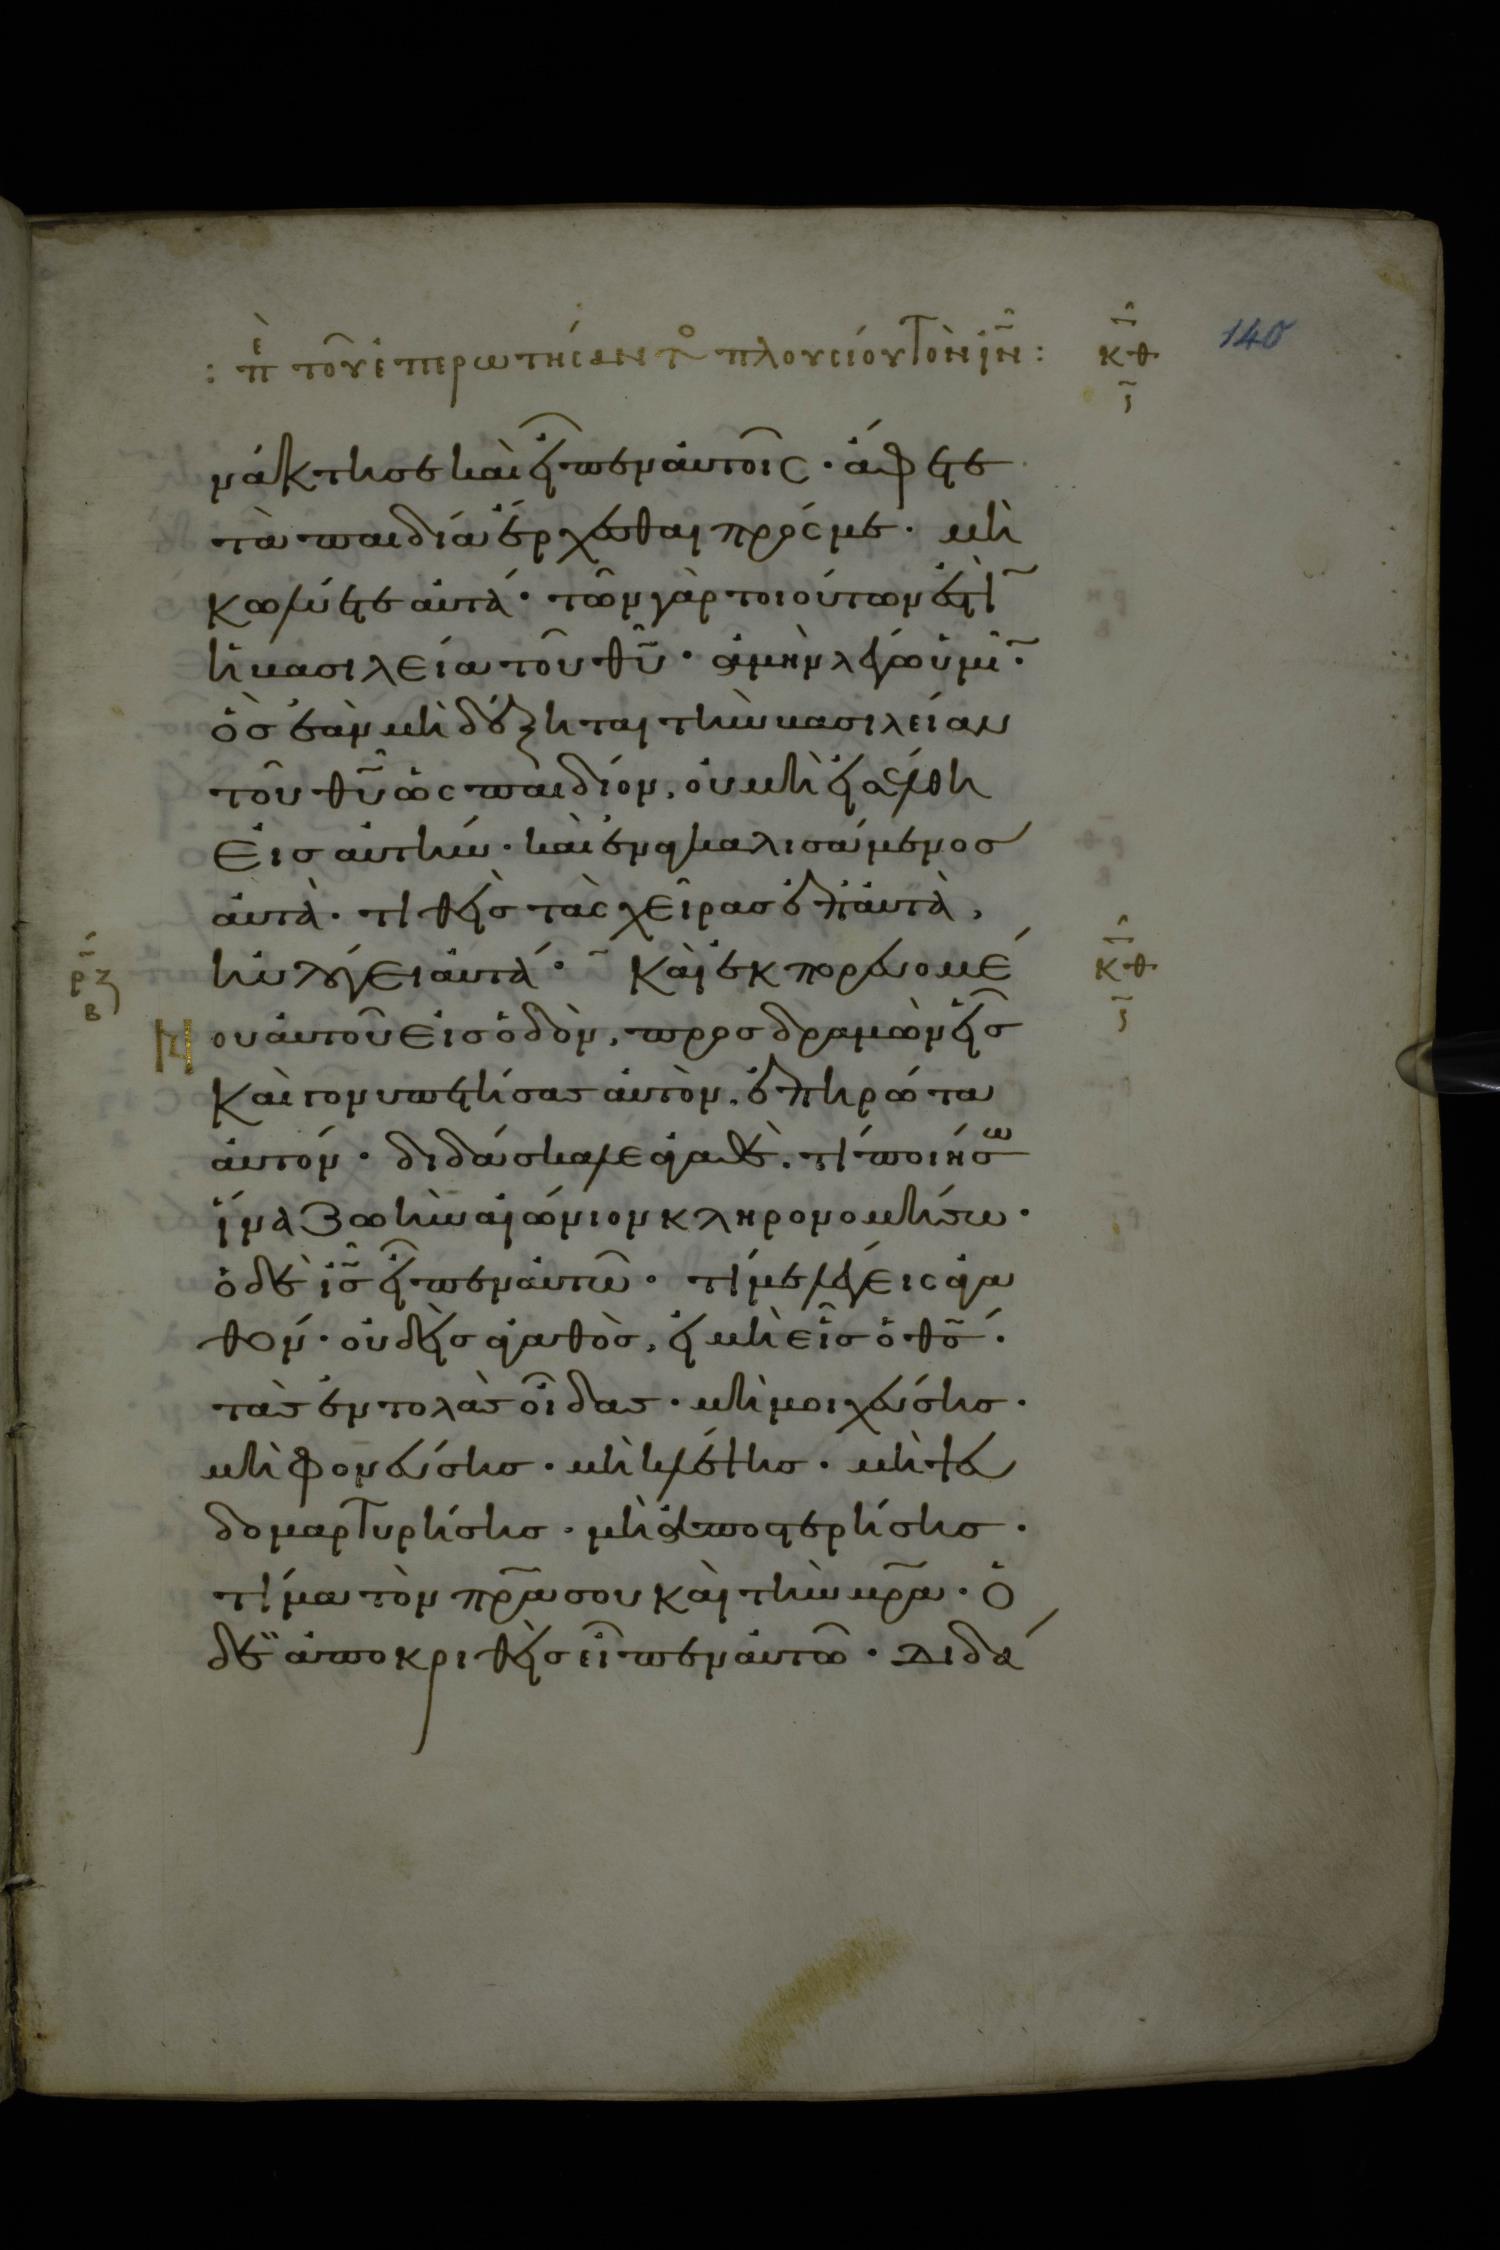 : περὶ τοῦ ἐπερωτήσαντος πλουσίου τὸν ἰν̅ :
κθ
ι
140
νάκτησε καὶ εἶπεν αὐτοῖς · ἄφετε
τὰ παιδία ἔρχεσθαι πρός με · μὴ
κωλύετε αὐτά · τῶν γὰρ τοιούτων ἐστὶ̅
ἡ βασιλεία τοῦ θυ̅ · ἀμὴν λέγω ὑμῖ̅ ·
ὃς ἐὰν μὴ δέξηται τὴν βασιλείαν
τοῦ θυ̅ ὡς παιδίον, οὐ μὴ εἰσέλθη
εἰς αὐτήν · καὶ ἐναγκαλισάμενος
αὐτὰ · τιθεὶς τὰς χεῖρας ἐπ' αὐτὰ,
ηὐλόγει αὐτά · Καὶ ἐκπορευομέ
κθ
ι
ρζ
β
Ν ου αὐτοῦ εἰς ὁδὸν, προσδραμὼν εἷς
καὶ γονυπετήσας αὐτὸν, ἐπηρώτα
αὐτόν · διδάσκαλε ἀγαθὲ, τί ποιήσω
ἵνα ζωὴν αἰώνιον κληρονομήσω ·
ὁ δὲ ις̅ εἶπεν αὐτῶ · τί με λέγεις ἀγα
θόν · οὐδεὶς ἀγαθὸς, εἰ μὴ εἷς ὁ θς̅ ·
τὰς ἐντολὰς οἶδας · μὴ μοιχεύσης ·
μὴ φονεύσης · μὴ κλέψης · μὴ ψευ
δομαρτυρήσης · μὴ ἀποστερήσης ·
τίμα τὸν πρ̅α σου καὶ τὴν μρ̅α · ὁ
δὲ ἀποκριθεὶς εἶπεν αὐτῶ · Διδά